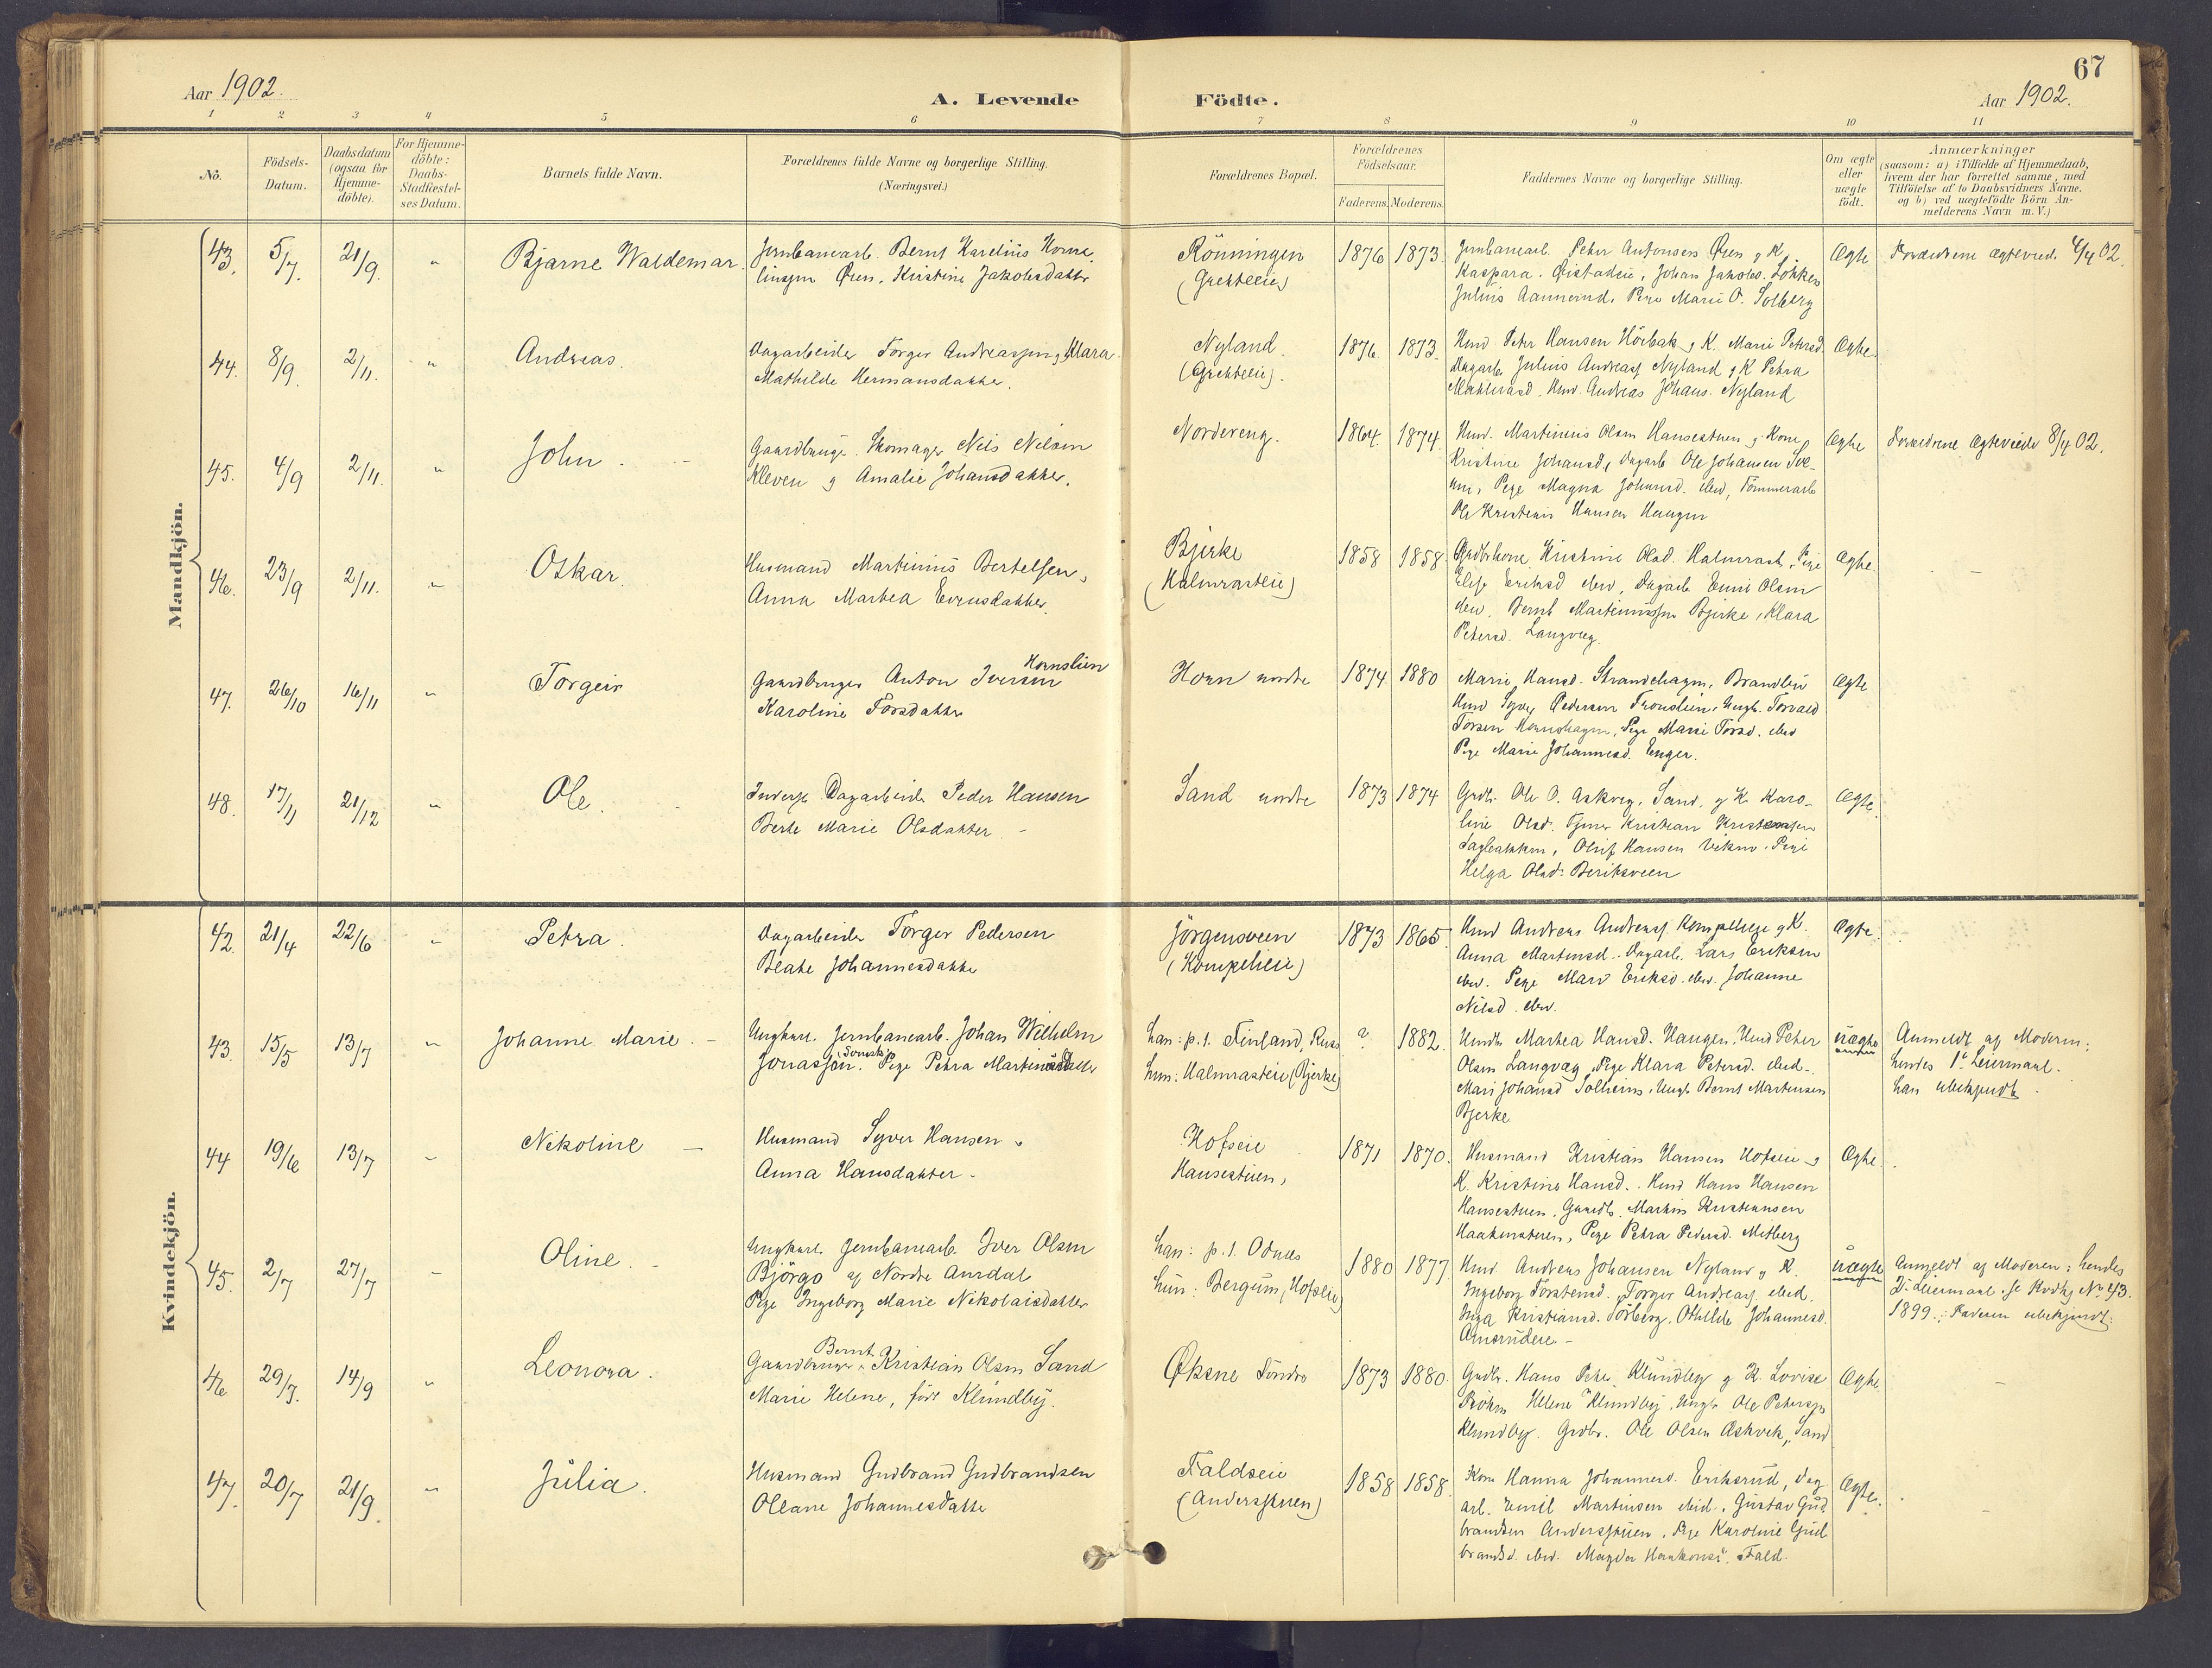 67
Aar 1902.
A. Levende Födte.
Aar 1902.
1 2 3 4 5 6 7 8 9 10 11
No.
Födsels-
Datum.
Daabsdatum
(ogsaa for
Hjemme-
döbte).
For Hjemme-
döbte:
Daabs-
Stadfæstel-
ses Datum.
Barnets fulde Navn.
Forældrenes fulde Navne og borgerlige Stilling.
(Næringsvei.)
Forældrenes Bopæl.
Forældrenes
Födselsaar.
Faderens. Moderens.
Faddernes Navne og borgerlige Stilling.
Om ægte
eller
uægte
födt.
Anmærkninger
(saasom: a) i Tilfælde af Hjemmedaab,
hvem der har forrettet samme, med
Tilföielse af to Daabsvidners Navne.
og b) ved uægtefödte Börn An-
melderens Navn m. V.)
Mandkjön.
43. 5/7. 21/9. "
Bjarne Waldemar.
Jernbanearb. Bernt Karelius
Øren, Kristine Jakobsdatter
Rönningen
1876 1873.
Jernbanearb. Peter Antonsen Øren g K.
Kaspara, Johan Jakobs. Løkken
Julius Pige Marie O. Solberg
Ægte
Forældrene ægteviede 4/4 02.
44. 8/9. 2/11. "
Andreas.
Dagarbeider Torger Andreassen g Klara
Mathilde Hermansdatter.
Nyland.
1876 1873.
Hmd Peter Hansen Hörbak g K. Marie Petersd.
Dagarb Julius Andreass Nyland g K Petra
Hmd. Andreas Johans. Nyland
Ægte
45. 4/9 2/11. "
John.
Gaardbruger Skomager Nels Nelsen
Kleven g Amalie Johansdatter.
Nordereng.
1864. 1874.
Hmd. Martinius Olsen Hansestuen g Kone
Kristine Johansd, Dagarb Ole Johansen
Pige Magna Johansd. ibid, Tömmerarb
Ole Kristian Hansen Haugen
Ægte
Forældrene Ægteviede 8/4 02.
46. 23/9 2/11. "
Oskar.
Husmand Martinius Bertelsen,
Anna Martea Evensdatter.
Bjerke
(Halmrasteie)
1858 1858.
Gaardbrkone Kristine Olsd. Halmrast, Pige
Elise Eriksd ibid, Dagarb Olsen
ibid. Bernt Martiniussen Bjerke, Klara
Petersd. Langvæg.
Ægte.
47. 26/10 16/11 "
Torgeir
Gaardbruger Anton Iversen Hornslien
Karoline Torsdatter
Horn nordre
1874 1880
Marie Hansd. Strandehagen, Brandlien
Hmd Syver Pedersen Fronslien, Ungk. Torvald
Torsen Hornshagen, Pige Marie Torsd. ibid
Pige Marie Johannesd. Enger.
Ægte
48. 17/11 21/12 "
Ole.
Inderst Dagarbeider Peder Hansen
Berte Marie Olsdatter.
Sand nordre
1873 1874
Grdb. Ole O. Askveg, Sand, g K. Karo-
line Olsd. Tjener Kristian Kristensen
Sagbakken, Oluf Hansen Viken, Pige
Helga Olsd. Beriksveen
Ægte.
Kvindekjön.
42. 21/4 22/6 "
Petra.
Dagarbeider Torger Pedersen
Beate Johannesdatter
Jörgensveen
(Kompelieie)
1873 1865.
Hmd Andreas Andreass. g K.
Anna Martinsd. Dagarb. Lars Eriksen
ibid. Pige Mari Eriksd. ibid. Johanne
Nilsd. ibid.
Ægte.
43. 15/5 13/7 "
Johanne Marie.
Ungkarl. Jernbanearb. Johan Wilhelm
Jonasson. Svensk. Pige Petra Martinsdatter
han: p. t. Finland, Russ
hun: Halmrasteie (Bjerke)
? 1882.
Martea Hansd. Haugen, Hmd Peter
Olsen Langvæg, Pige Klara Petersd. ibid.
Mari Johansd Solheim, Ungk Bernt Martinsen
Bjerke
uægte
Anmeldt af Moderen;
hendes 1ste Leiermaal.
han ubekjendt.
44 19/6 13/7 "
Nikoline
Husmand Syver Hansen &
Anna Hansdatter.
Hofseie
Hansestuen,
1871 1870.
Husmand Kristian Hansen Hofseie g
K. Kristine Hansd. Hmd Hans Hansen
Hansestuen, Gaardb. Martin Kristiansen
Haakenstuen, Pige Petra Pedersd. Mitberg
Ægte.
45. 2/7 27/7 "
Oline.
Ungkarl. Jernbanearb. Iver Olsen
Björgo af Nordre Aurdal
Pige Ingeborg Marie Nikolaisdatter
han: p. t. Odnes
hun: Bergum, (Hofseie)
1880 1877.
Hmd. Andreas Johansen Nyland g K.
Ingeborg Torstensd. Torger Andreass. ibid.
Inga Kristiansd. Torberg, Othilde Johannesd.
Amsrudeie.
uægte
Anmeldt af Moderen: hendes
2det Leiermaal. se Kvdkj No 43.
1899.; Faderen ubekjendt.
46. 29/7. 14/9 "
Leonora.
Gaardbruger Bernt Kristian Olsen Sand
Marie Helene, födt Klundby.
Øksne Söndre
1873 1880.
Grdbr. Hans Peter Klundby g K. Lovise
Fröken Helene Klundby, Ungk Ole Petersen
Klundby. Grdbr. Ole Olsen Askvek, Sand
Ægte
47. 20/7 21/9 "
Julia.
Husmand Gudbrand Gudbrandsen
Oleane Johannesdatter
Faldseie
(Andersstuen)
1858 1858.
Kone Hanna Johannesd. Eriksrud, Dag
arb. Emil Martinsen ibid. Gustav Gud
brandsen Andersstuen, Pige Karoline Gud
brandsd. ibid. Magda Haakonsd. Fald.
Ægte.